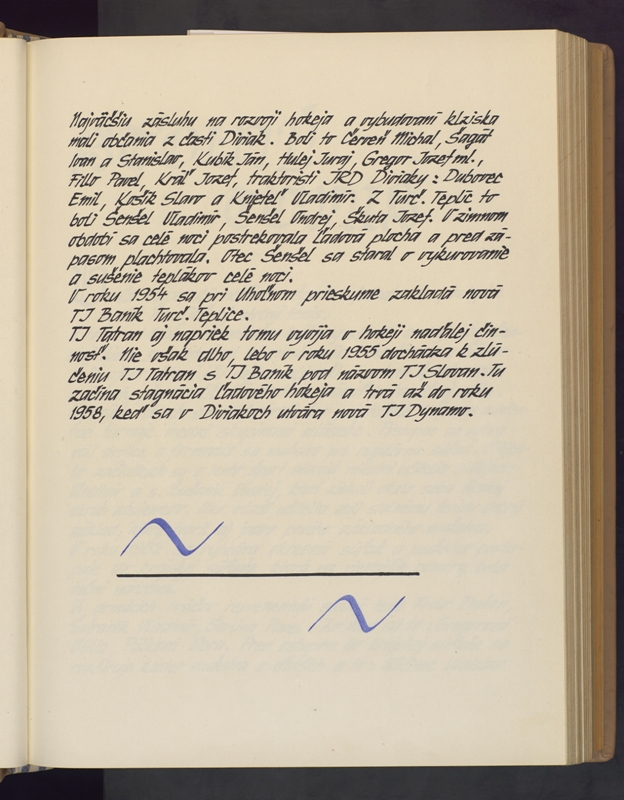 Najväčšiu zásluhu na rozvoji hokeja a vybudovaní klziska
mali občania z časti Diviak. Boli to Červeň Michal, Šagát
Ivan a Stanislav, Kubík Ján, Hulej Juraj, Gregor Jozef ml.,
Fillo Pavel, Kráľ Jozef, traktoristi JRD Diviaky: Dubovec
Emil, Košík Slavo a Knjeteľ Vladimír. Z Turč. Teplíc to
boli Šenšel Vladimír, Šenšel Ondrej, Škuta Jozef. V zimnom
období sa celé noci postrekovala ľadová plocha a pred zá-
pasom plachtovala. Otec Šenšel sa staral o vykurovanie
a sušenie teplákov celé noci.
V roku 1954 sa pri Uhoľnom prieskume zakladá nová
TJ Baník Turč. Teplice.
TJ Tatran aj napriek tomu vyvíja v hokeji naďalej čin-
nosť. Nie však dlho, lebo v roku 1955 dochádza k zlú-
čeniu TJ Tatran s TJ Baník pod názvom TJ Slovan. Tu
začína stagnácia ľadového hokeja a trvá až do roku
1958, keď sa v Diviakoch utvára nová TJ Dynamo.